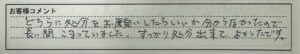 お客様コメント
どちらに処分をお願いしたらいいか分からなかったので
長い間、こまっていました。すっかり処分出来て、よかったです。